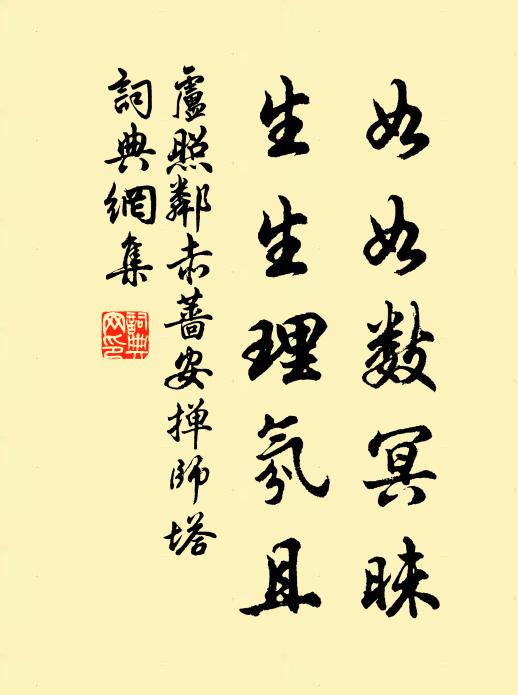 如如數冥昧
生生理氛且
盧照鄰赤薔安掸師塔
詞典網集
詞典网印